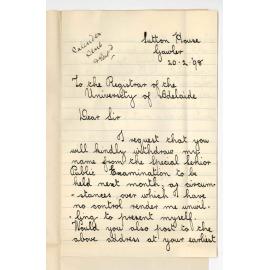 Calendar
sent
Sutton House
Gawler
20.2.'98
To the Registrar of the
University of Adelaide
Dear Sir
I request that you
will kindly withdraw my
name from the Special Senior
Public Examination to be
held next month, as circum-
-stances over which I have
no control render me unwil-
-ling to present myself.
Would you also post to the
above address at your earliest